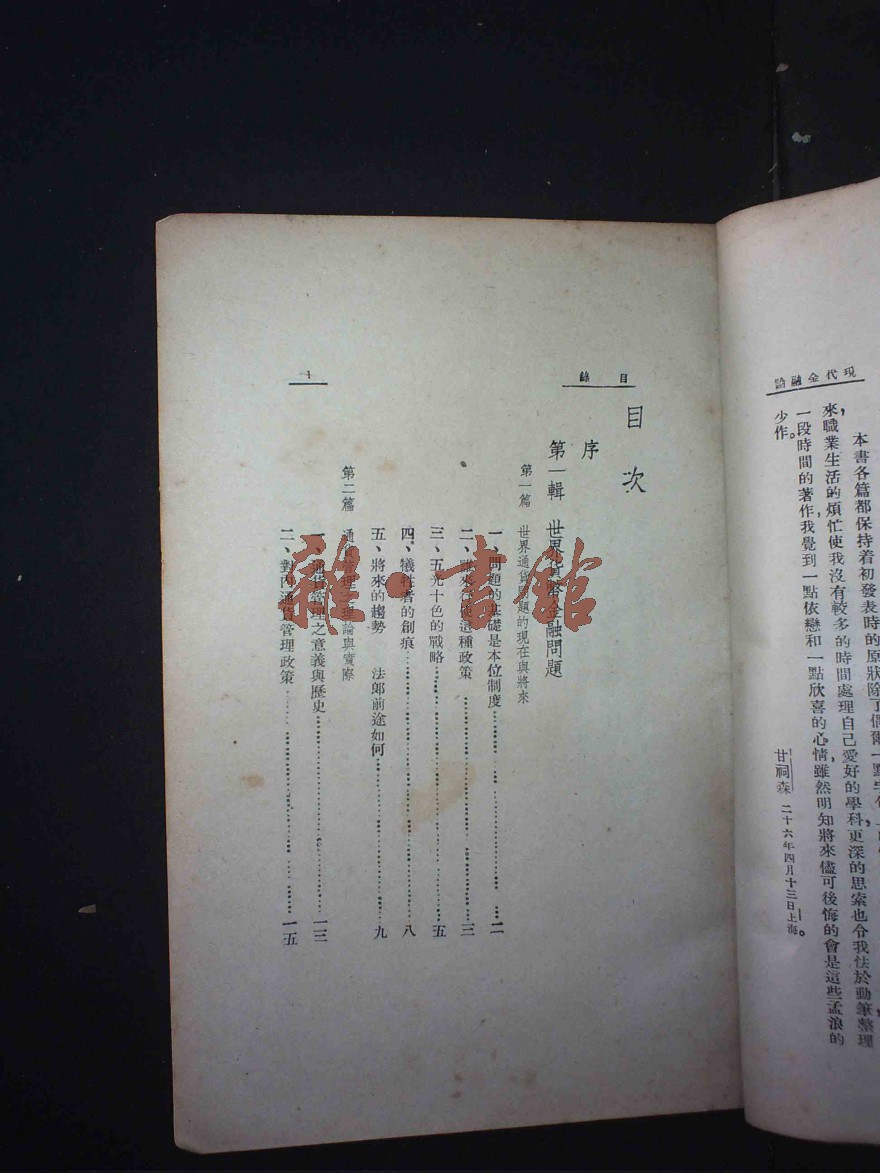 現代金融論
本書各篇都保持着初發表時的原狀除了偶爾一點
來，職業生活的煩忙使我沒有較多的時間處理自己愛好的學科更深的思索也令我怯於動筆整理
一段時間的著作，我覺到一點依戀和一點欣喜的心情，雖然明知將來儘可後悔的會是這些孟浪的
少作。
甘祠森 二十六年四月十三日上海。
目錄
目次
序
第一輯 世界貨幣金融問題
第一篇 世界通貨問題的現在與將來
一、問題的基礎是本位制度……二
二、誰來行使這種政策……三
三、五光十色的戰略……五
四、犧牲者的創痕……八
五、將來的趨勢 法郎前途如何……九
第二篇 通貨管理之理論與實際
一、通貨管理之意義與歷史……一三
二、對內通貨管理政策……一五
雜·書館